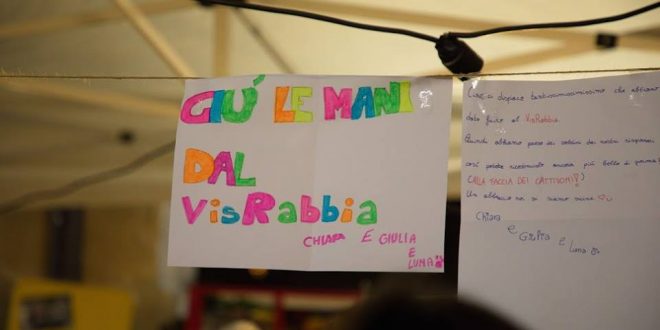 GIÚ LE MANI
DAL
VisRabbia
CHIARA E GIULIA
E
LUNA
Ci è dispiace tantissimissimissimo che abbiano
dato fuoco al VisRabbia.
Quindi abbiamo preso dei soldini dai nostri risparmi
così potete ricostruirlo ancora più bello di prima
(ALLA FACCIA DEI CATTIVONI!)
Un abbraccio
Chiara
e Giulia
e Luna